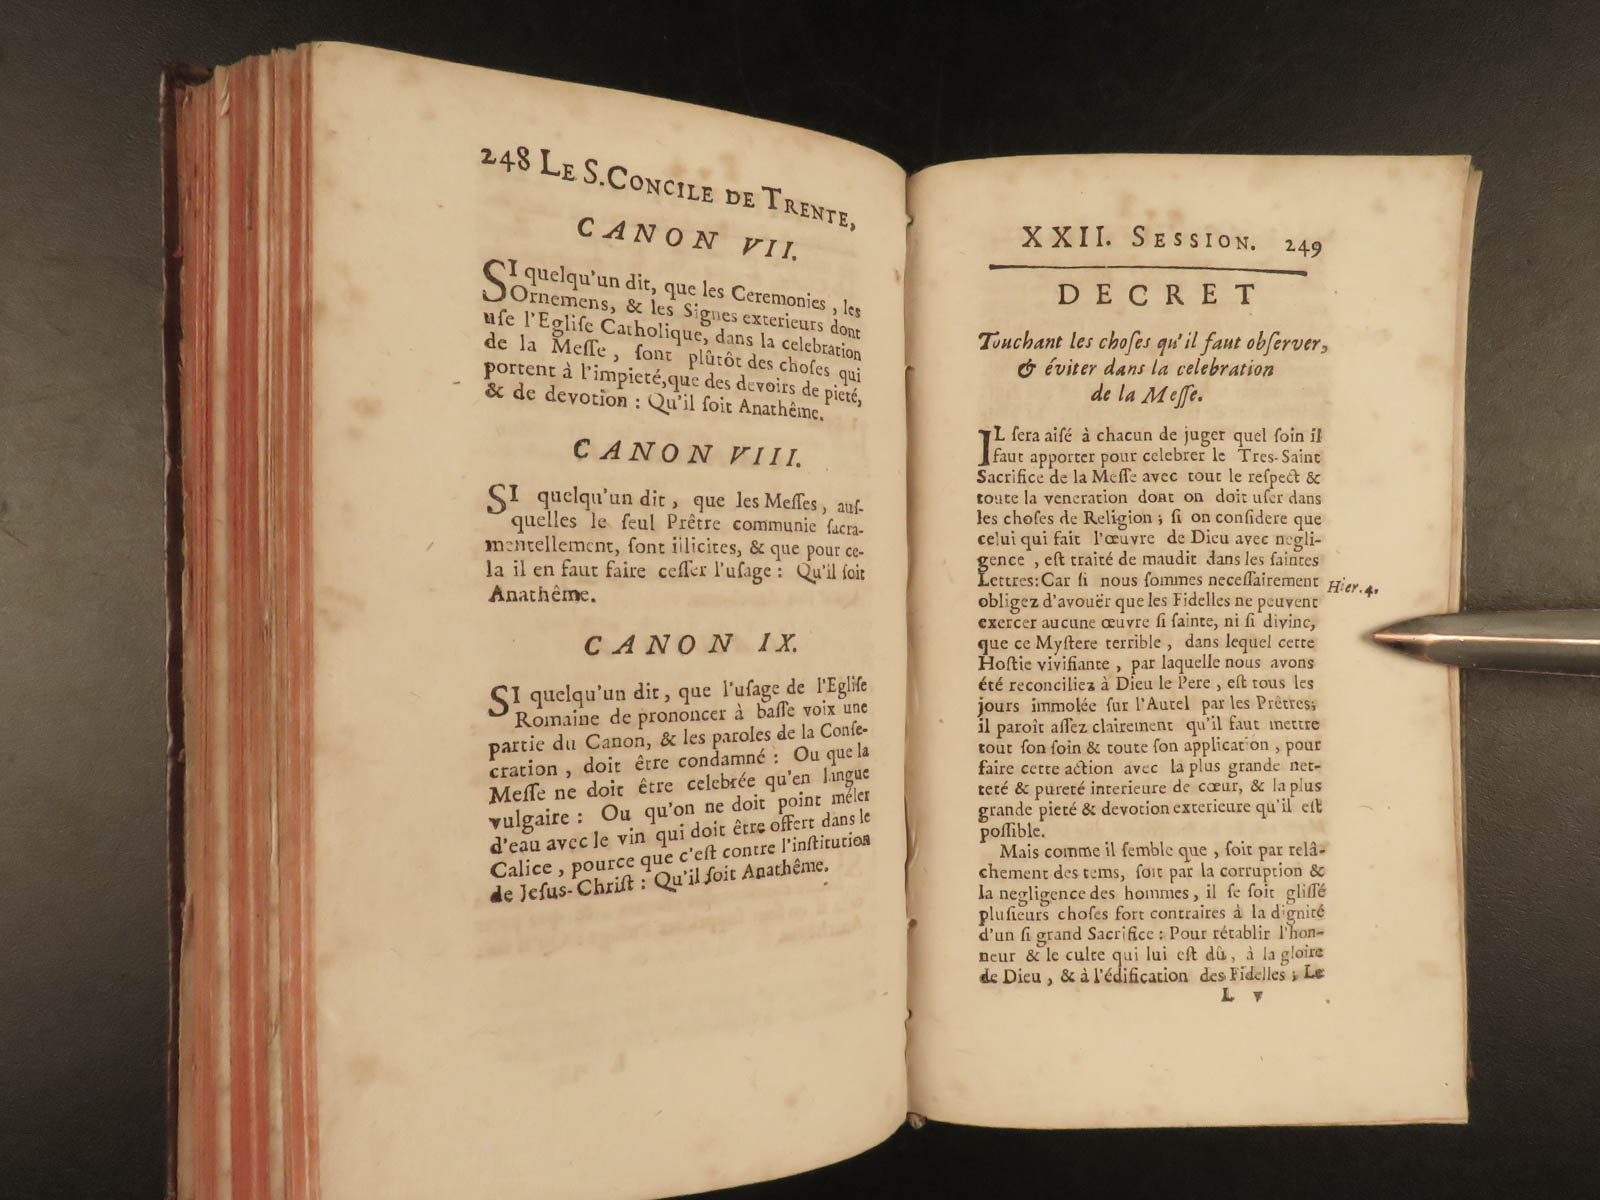 248 LE S. CONCILE DE TRENTE,
CANON VII.
SI quelqu'un dit, que les Ceremonies, les
Ornemens, & les Signes exterieurs dont
uſe l'Egliſe Catholique, dans la celebration
de la Meſſe, ſont plûtôt des choſes qui
portent à l'impieté, que des devoirs de pieté,
& de devotion : Qu'il ſoit Anathême.
CANON VIII.
SI quelqu'un dit, que les Meſſes, auſ-
quelles le ſeul Prêtre communie ſacra-
mentellement, ſont illicites, & que pour ce-
la il en faut faire ceſſer l'uſage : Qu'il ſoit
Anathême.
CANON IX.
SI quelqu'un dit, que l'uſage de l'Egliſe
Romaine de prononcer à baſſe voix une
partie du Canon, & les paroles de la Conſe-
cration, doit être condamné : Ou que la
Meſſe ne doit être celebrée qu'en langue
vulgaire : Ou qu'on ne doit point mêler
d'eau avec le vin qui doit être offert dans le
Calice, pource que c'eſt contre l'inſtitution
de Jeſus-Chriſt : Qu'il ſoit Anathême.
XXII. SESSION. 249
DECRET
Touchant les choſes qu'il faut obſerver,
& éviter dans la celebration
de la Meſſe.
IL ſera aiſé à chacun de juger quel ſoin il
faut apporter pour celebrer le Tres-Saint
Sacrifice de la Meſſe avec tout le reſpect &
toute la veneration dont on doit uſer dans
les choſes de Religion ; ſi on conſidere que
celui qui fait l'œuvre de Dieu avec negli-
gence, eſt traité de maudit dans les ſaintes
Lettres: Car ſi nous ſommes neceſſairement
Hier. 4.
obligez d'avouër que les Fidelles ne peuvent
exercer aucune œuvre ſi ſainte, ni ſi divine,
que ce Myſtere terrible, dans lequel cette
Hoſtie vivifiante, par laquelle nous avons
été reconciliez à Dieu le Pere, eſt tous les
jours immolée ſur l'Autel par les Prêtres;
il paroît aſſez clairement qu'il faut mettre
tout ſon ſoin & toute ſon application, pour
faire cette action avec la plus grande net-
teté & pureté interieure de cœur, & la plus
grande pieté & devotion exterieure qu'il eſt
poſſible.
Mais comme il ſemble que, ſoit par relâ-
chement des tems, ſoit par la corruption &
la negligence des hommes, il ſe ſoit gliſſé
pluſieurs choſes fort contraires à la dignité
d'un ſi grand Sacrifice : Pour rétablir l'hon-
neur & le culte qui lui eſt dû, à la gloire
de Dieu, & à l'édification des Fidelles ; Le
L v